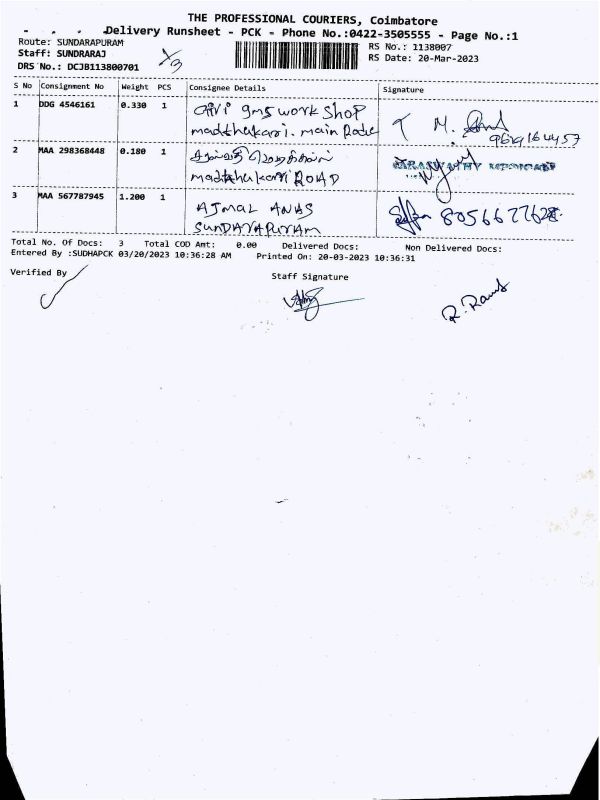 THE PROFESSIONAL COURIERS, Coimbatore
Delivery Runsheet - PCK - Phone No.:0422-3505555 - Page No.:1
Route: SUNDARAPURAM
Staff: SUNDRARAJ
DRS No.: DCJB113800701
RS No.: 1138007
RS Date: 20-Mar-2023
S No Consignment No Weight PCS Consignee Details Signature
1 DDG 4546161 0.330 1
work Shop
main Rode
9619164457
2 MAA 298368448 0.180 1
ROAD
3 MAA 567787945 1.200 1
AJMAL ANAS
SUNDARAPURAM
Total No. Of Docs: 3 Total COD Amt: 0.00 Delivered Docs: Non Delivered Docs:
Entered By :SUDHAPCK 03/20/2023 10:36:28 AM Printed On: 20-03-2023 10:36:31
Verified By
Staff Signature